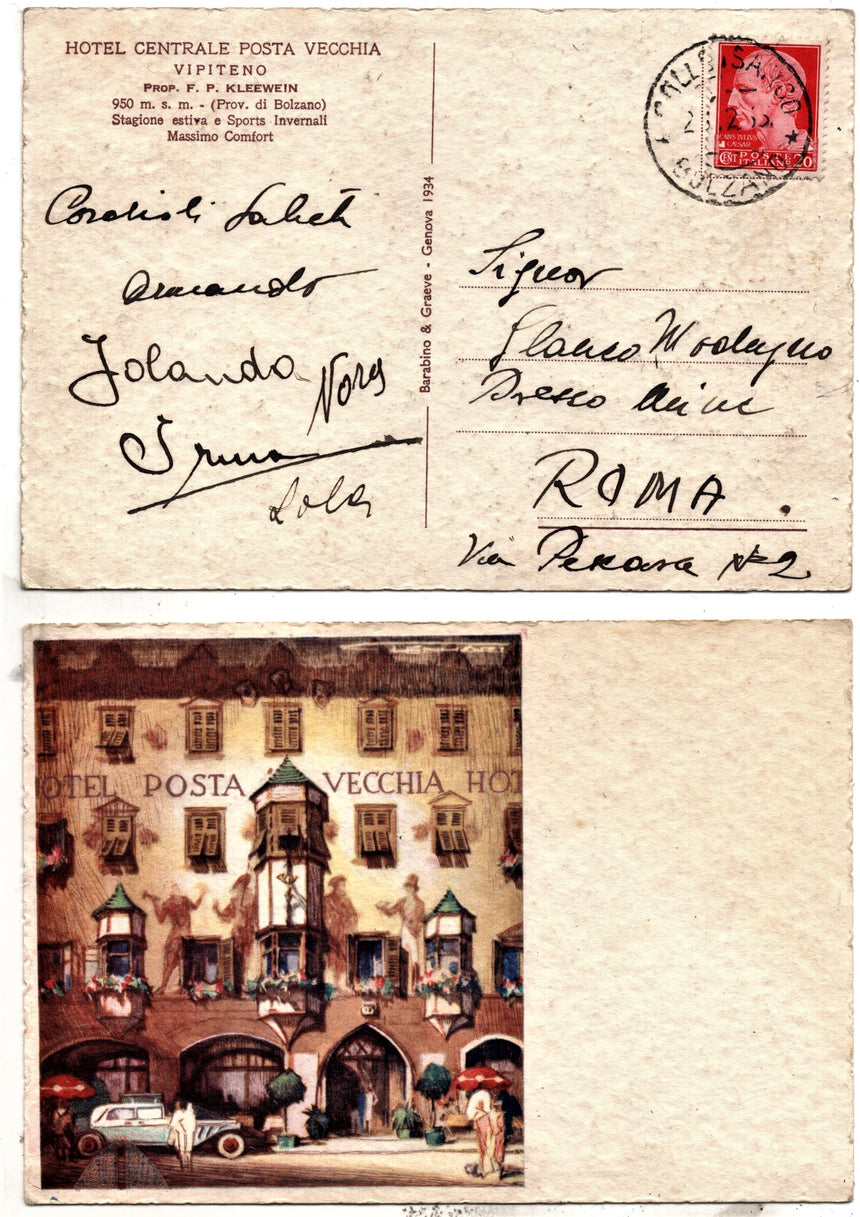 HOTEL CENTRALE POSTA VECCHIA
VIPITENO
PROP. F. P. KLEEWEIN
950 m. s. m. - (Prov. di Bolzano)
Stagione estiva e Sports Invernali
Massimo Comfort
Cordiali Saluti
Armando
Jolanda
Nora
Irma
Lola
Barabino & Graeve - Genova 1934
COLLE ISARCO
BOLZANO
CAIVS IVLIVS
CAESAR
CENT POSTE 20
ITALIANE
Signor
Glauco Modugno
Presso
ROMA.
Via Pescara No 2
OTEL POSTA VECCHIA HOT